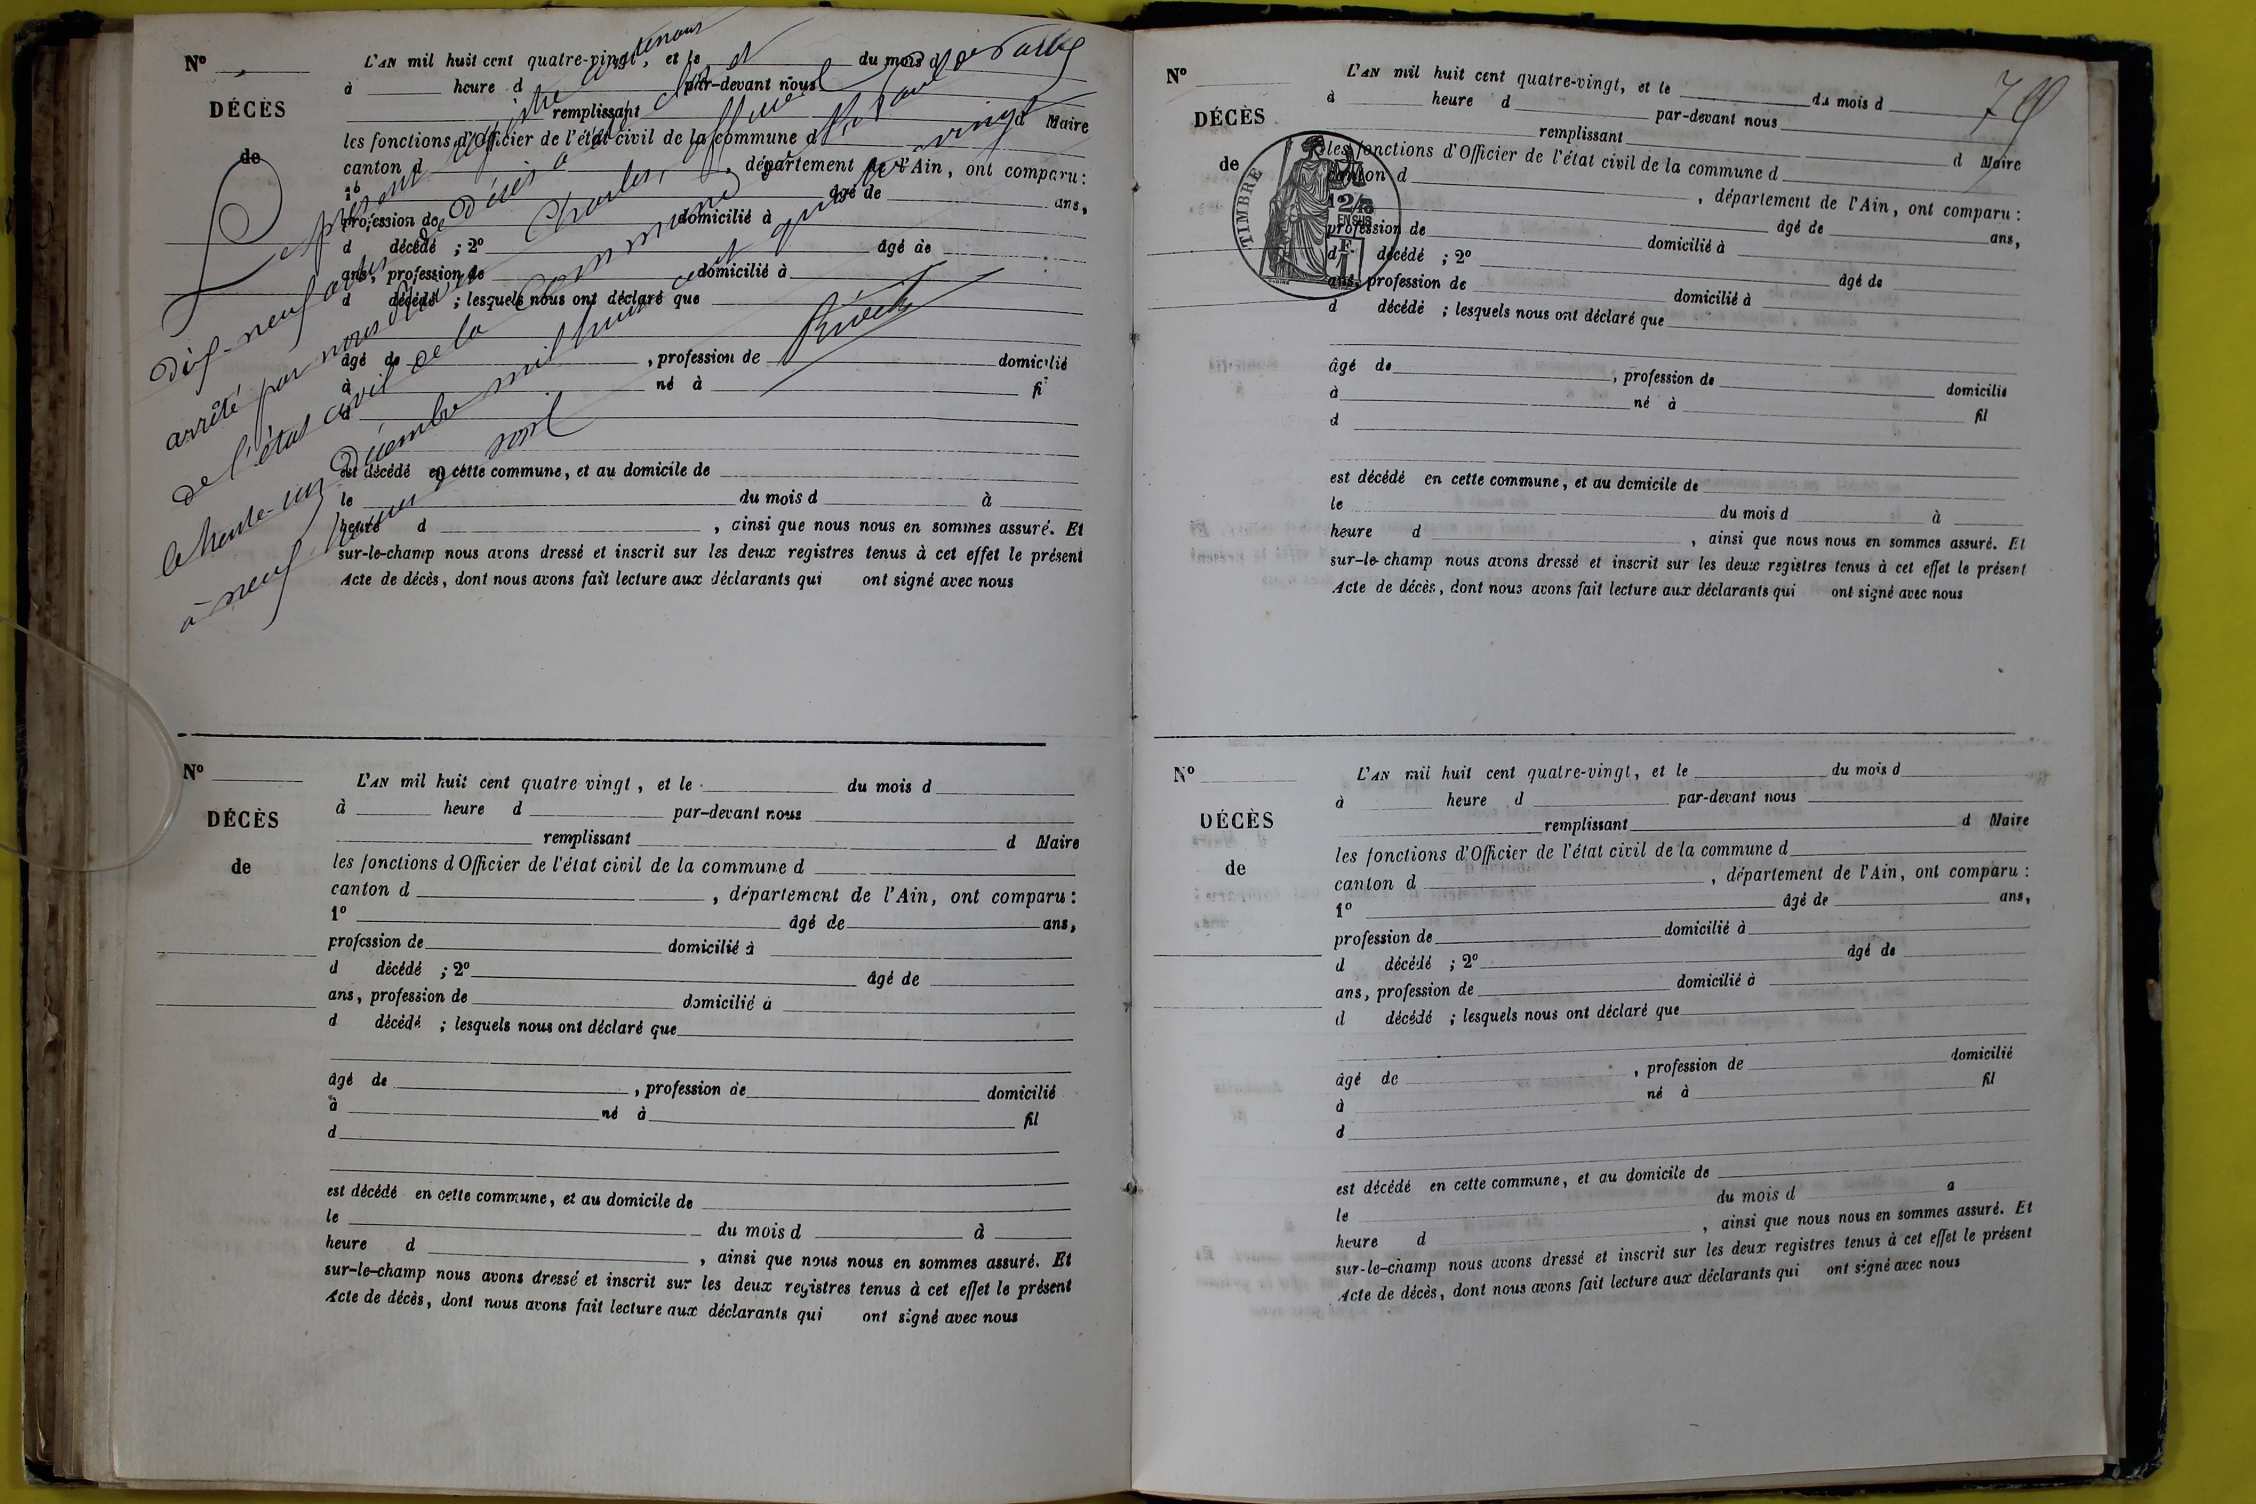 Nº
DÉCÈS
de
L'AN mil huit cent quatre-vingt, et le du mois d
à heure d par-devant nous
remplissant d Maire
les fonctions d'Officier de l'état civil de la commune d
canton d , département de l'Ain, ont comparu :
1º âgé de ans,
profession de domicilié à
d décédé ; 2º âgé de
ans, profession de domicilié à
d décédé ; lesquels nous ont déclaré que
âgé de , profession de domicilié
à né à fil
d
est décédé en cette commune, et au domicile de
le du mois d à
heure d , ainsi que nous nous en sommes assuré. Et
sur-le-champ nous avons dressé et inscrit sur les deux registres tenus à cet effet le présent
Acte de décès, dont nous avons fait lecture aux déclarants qui ont signé avec nous
Le présent registre contenant
dix-neuf actes de Décès a été clos et
arrêté par nous Charles, officier
de l'état civil de la Commune de St Paul de Varax
le trente-un Décembre mil huit cent quatre vingt
à neuf heures du soir
Nº
DÉCÈS
de
L'AN mil huit cent quatre vingt, et le du mois d
à heure d par-devant nous
remplissant d Maire
les fonctions d'Officier de l'état civil de la commune d
canton d , département de l'Ain, ont comparu :
1º âgé de ans,
profession de domicilié à
d décédé ; 2º âgé de
ans, profession de domicilié à
d décédé ; lesquels nous ont déclaré que
âgé de , profession de domicilié
à né à fil
d
est décédé en cette commune, et au domicile de
le du mois d à
heure d , ainsi que nous nous en sommes assuré. Et
sur-le-champ nous avons dressé et inscrit sur les deux registres tenus à cet effet le présent
Acte de décès, dont nous avons fait lecture aux déclarants qui ont signé avec nous
Nº
DÉCÈS
de
TIMBRE
12 4/5
EN SUS
F.
L'AN mil huit cent quatre-vingt, et le du mois d
à heure d par-devant nous
remplissant d Maire
les fonctions d'Officier de l'état civil de la commune d
canton d , département de l'Ain, ont comparu :
âgé de ans,
profession de domicilié à
d décédé ; 2º âgé de
ans, profession de domicilié à
d décédé ; lesquels nous ont déclaré que
âgé de , profession de domicilié
à né à fil
d
est décédé en cette commune, et au domicile de
le du mois d à
heure d , ainsi que nous nous en sommes assuré. Et
sur-le-champ nous avons dressé et inscrit sur les deux registres tenus à cet effet le présent
Acte de décès, dont nous avons fait lecture aux déclarants qui ont signé avec nous
Nº
DÉCÈS
de
L'AN mil huit cent quatre-vingt, et le du mois d
à heure d par-devant nous
remplissant d Maire
les fonctions d'Officier de l'état civil de la commune d
canton d , département de l'Ain, ont comparu :
1º âgé de ans,
profession de domicilié à
d décédé ; 2º âgé de
ans, profession de domicilié à
d décédé ; lesquels nous ont déclaré que
âgé de , profession de domicilié
à né à fil
d
est décédé en cette commune, et au domicile de
le du mois d à
heure d , ainsi que nous nous en sommes assuré. Et
sur-le-champ nous avons dressé et inscrit sur les deux registres tenus à cet effet le présent
Acte de décès, dont nous avons fait lecture aux déclarants qui ont signé avec nous